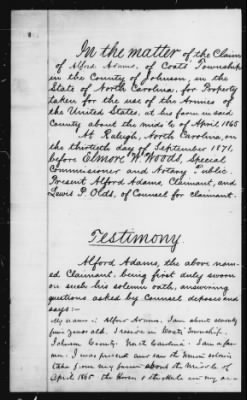 In the matter of the Claim
of Alford Adams, of Coats Township
in the County of Johnson, in the
State of North Carolina, for Property
taken for the use of the Armies of
the United States, at his farm in said
County about the middle of April 1865
At Raleigh, North Carolina, on
the thirtieth day of September 1871,
before Elmore W. Woods, Special
Commissioner and Notary Public.
Present Alford Adams, Claimant, and
Lewis P. Olds, of Counsel for claimant.
Testimony.
Alford Adams, the above nam-
ed Claimant, being first duly sworn
on such his solemn oath, answering
questions asked by Counsel deposes and
says:—
My name is Alford Adams. I am about seventy
four years old. I reside in Coats Township.
Johnson County. North Carolina. I am a far-
mer. I was present and saw the Union soldiers
take from my farm about the middle of
April 1865 the